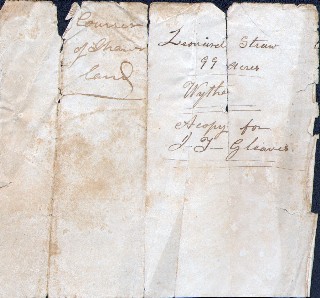 Courses
of Straw
land
Leonard Straw
99 Acres
Wythe
A copy for
J T Gleaves